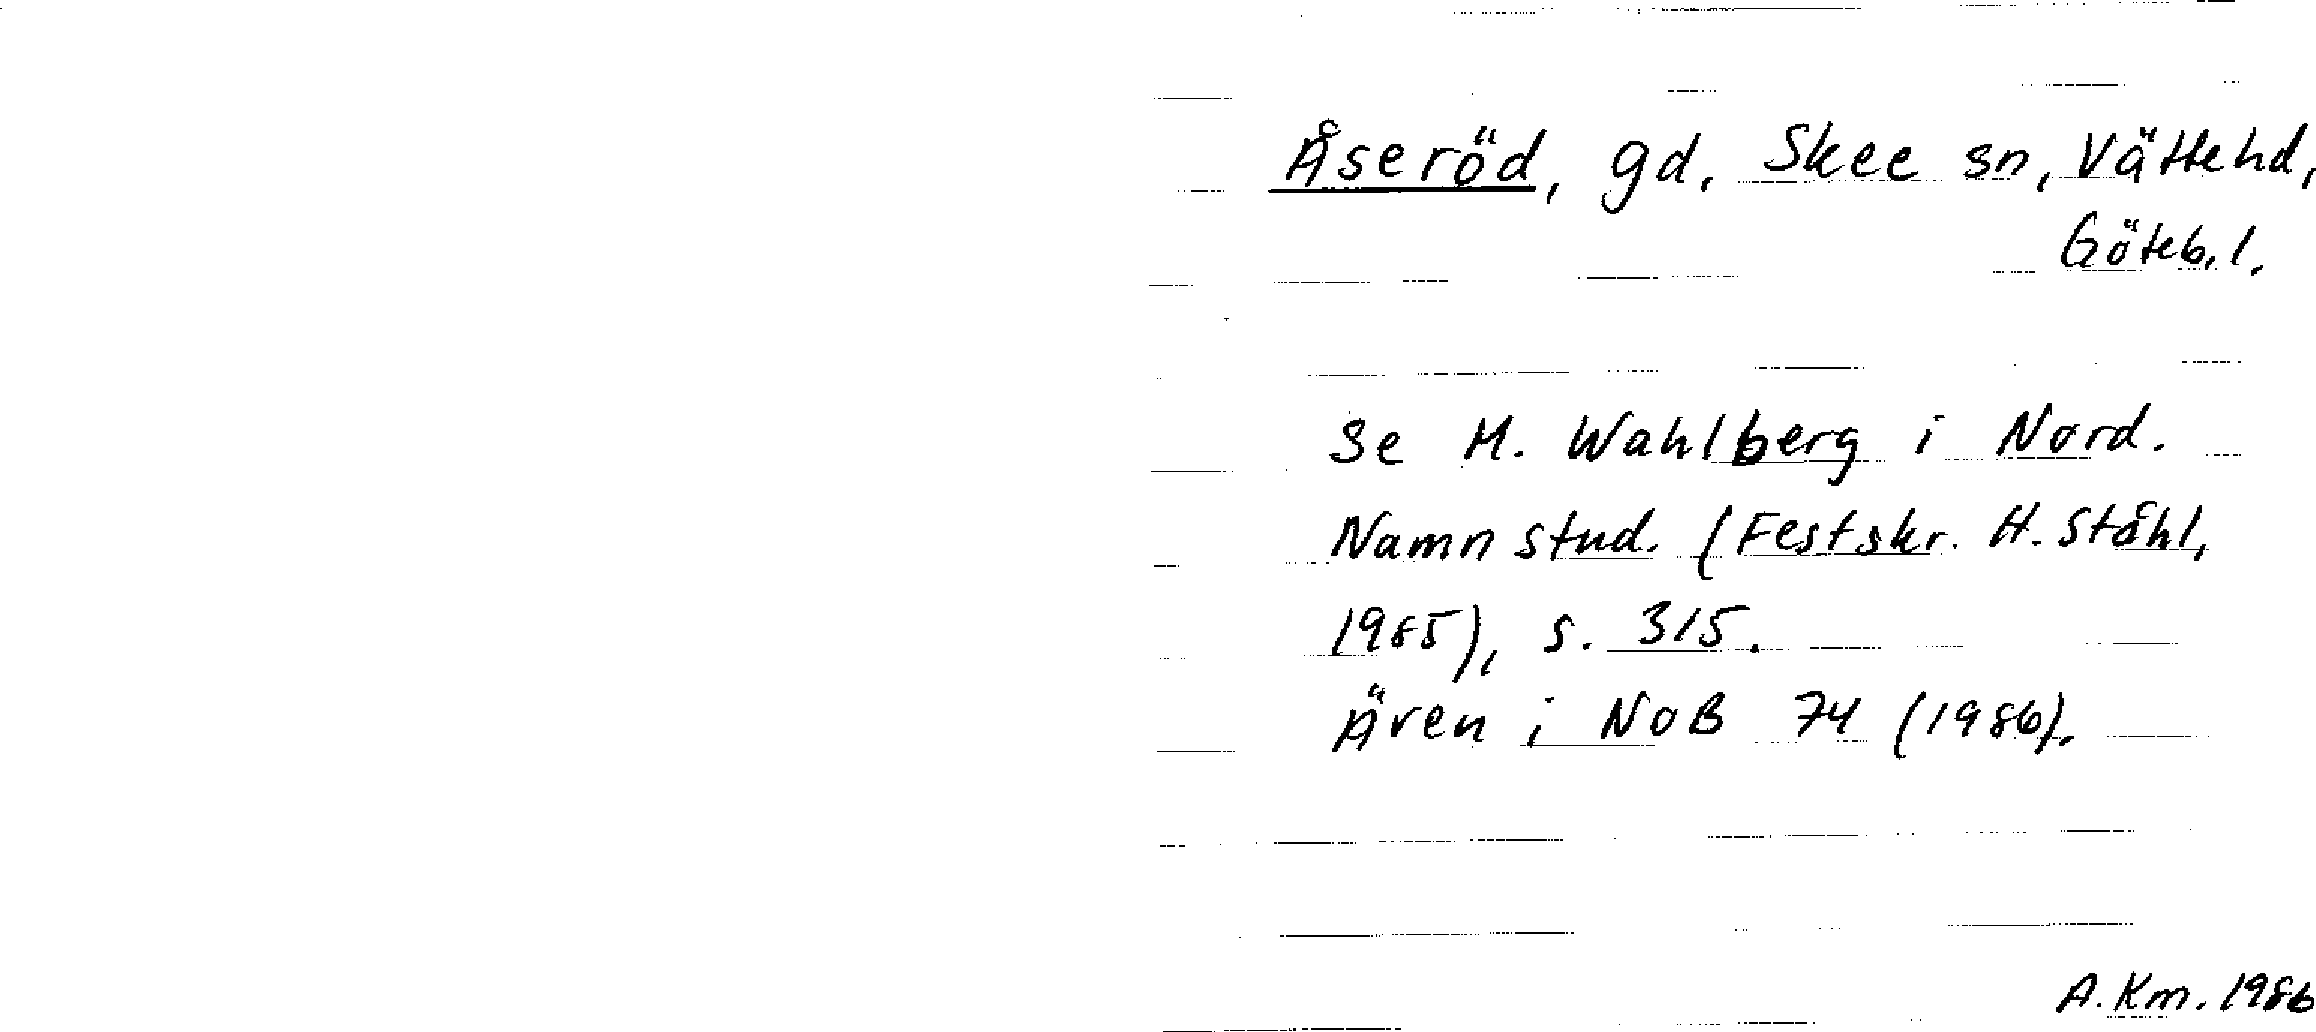 Åseröd, gd, Skee sn, Vättehd,
Göteb. l.
Se M. Wahlberg i Nord.
Namnstud. (Festskr. H. Ståhl,
1985), s. 315.
Även i NoB 74 (1986).
A. Km. 1986